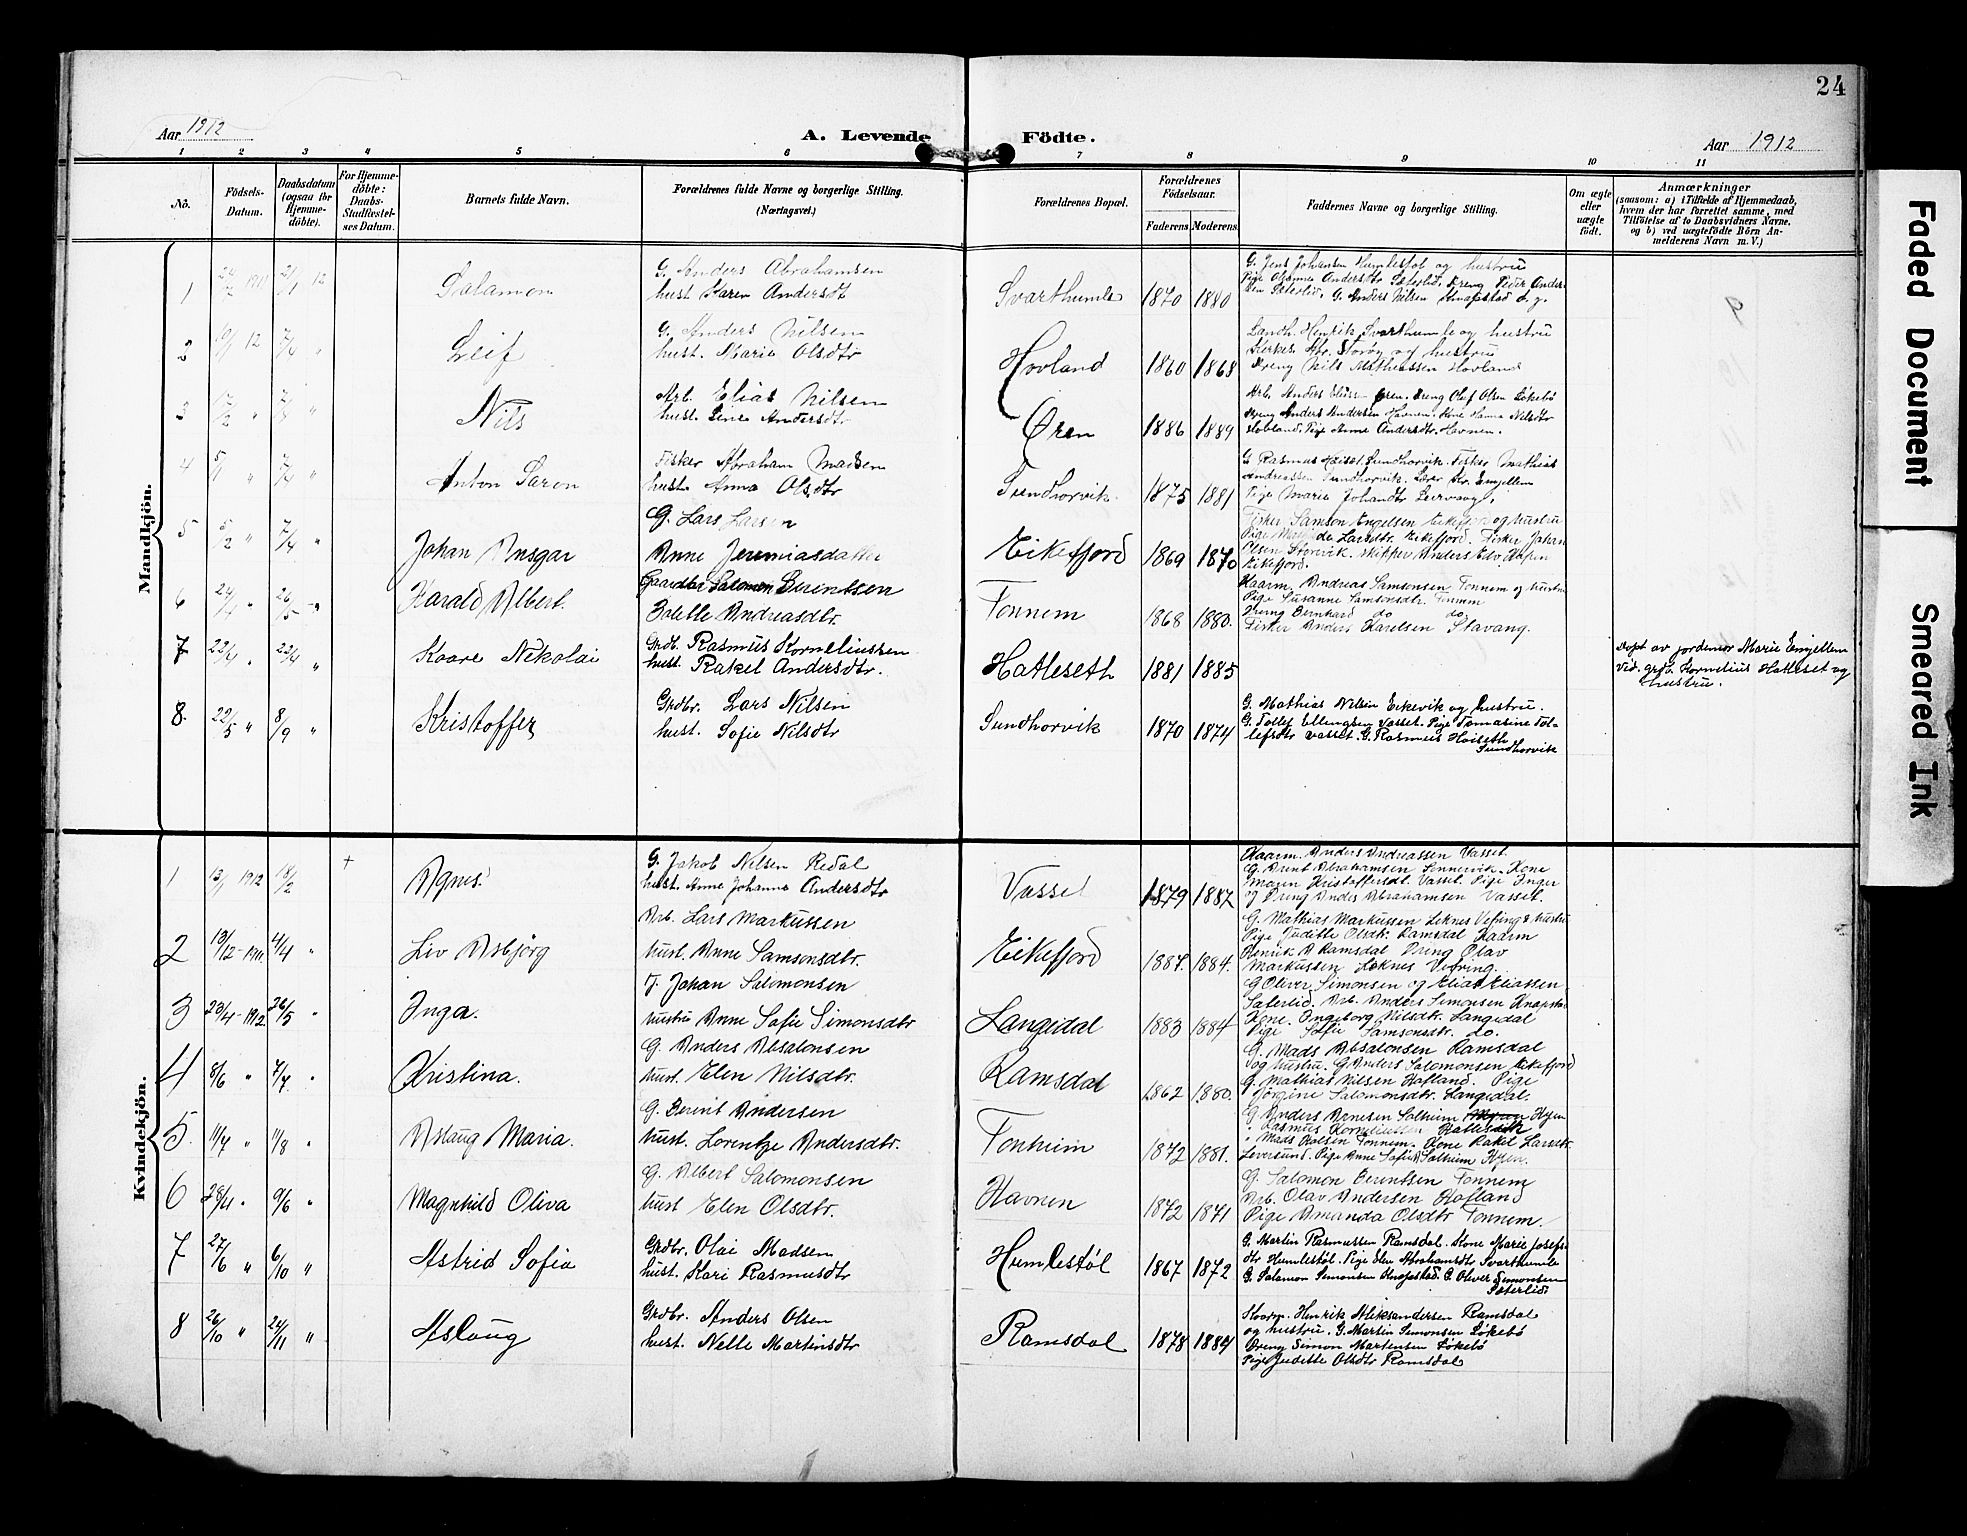 24
Aar 1912
A. Levende Födte.
Aar 1912
1 2 3 4 5 6 7 8 9 10 11
No.
Födsels-
Datum.
Daabsdatum
(ogsaa for
Hjemme-
döbte).
For Hjemme-
döbte:
Daabs-
Stadfæstel-
ses Datum.
Barnets fulde Navn.
Forældrenes fulde Navne og borgerlige Stilling.
(Næringsvei.)
Forældrenes Bopæl.
Forældrenes
Födselsaar.
Faderens
Moderens
Faddernes Navne og borgerlige Stilling.
Om ægte
eller
uægte
födt.
Anmærkninger
(saasom: a) i Tilfælde af Hjemmedaab,
hvem der har forrettet samme, med
Tilföielse af to Daabsvidners Navne,
og b) ved uægtefödte Börn An-
melderens Navn m. V.)
Mandkjön.
1 2/1 12
Salamon
G. Anders Abrahamsen
hust Karen Andersdt
Svarthumle 1870 1880
G. Jens Johansen Humlestøl og hustru
2 12 7/4 "
Leif
G. Anders Nilsen
hust. Marie Olsdtr
Hovland 1860 1868
Landh. Henrik Svarthumle og hustru
Kirkes. Abr. Storøy og hustru
Dreng Nils Mathiassen Hovland
3
Nils
Arb. Elias Nilsen
hust. Line Andersdtr
Øren 1886 1889
Arb. Anders Øren. Dreng Olaf Olsen Løkebø
Dreng Anders Andersen Havnen. Kone Hanna Nilsdtr
Pige Anne Andersdtr. Havnen.
4 5/1 " 7/4 "
Anton Saron
Fisker Abraham Madsen
hust. Anna Olsdtr
Sundhorvik. 1875 1881
G. Rasmus Høiset Sundhorvik. Fisker Mathias
Andreassen Sundhorvik. Lærer Emjellem
Pige Marie Johandtr Leirvaag.
5 5/2 " 7/4 "
Johan Ansgar
G. Lars Larsen
Anne Jeremiasdatter
Eikefjord 1869 1870
Fisker Samson Engelsen Eikefjord og hustru
Larsdtr. Eikefjord. Fisker Johan
Olsen Storvik. Skipper Anders
Eikefjord.
6 24/4 " 26/5 "
Harald Albert.
Gaardbr Salomon Berentsen
Bolette Andreasdtr.
Tonnem 1868 1880.
Haarm. Andreas Samsonsen Tonnem og hustru
Pige Susanne Samsonsdtr. Tonnem
Dreng Bernhard do do
Fisker Anders Karelsen Stavang.
7 22/4 " 22/4 "
Kaare Nikolai
Grdb. Rasmus Korneliussen
hust. Rakel Andersdtr.
Hatleseth 1881 1885
Døpt av jordemor Marie Emjellem
Vid. grdb. Kornelius Hatleset og
hustru.
8. 22/5 " 8/9 "
Kristoffer
Grdbr. Lars Nilsen
hust. Sofie Nilsdtr
Sundhorvik 1870 1874
G. Mathias Nilsen Eikevik og hustru.
G. Tollef Ellingsen Vasset. Pige Tomasine Tol-
lefsdtr Vasset. G. Rasmus Høiseth
Sundhorvik
Kvindekjön.
1 13/1 1912 18/2 +
Agnes.
G. Jakob Nilsen Redal
hust. Anne Johanne Andersdtr
Vasset 1879 1887
Haarm. Anders Andreassen Vasset.
G. Bernt Abrahamsen Sennervik. Kone
Maren Kristoffersdt. Vasset. Pige Inger
og Dreng Andes Abrahamsen Vasset.
2 19/12 - 1911 4/4 "
Liv Asbjørg
Arb. Lars Markussen
hust. Anne Samsonsdtr.
Eikefjord 1887. 1884.
G. Mathias Markussen Leknes Vefring & hustru
Pige Juditte Olsdtr. Ramsdal Haarm
Henrik A Ramsdal Dreng Olav
Markussen Leknes Vefring.
3 23/4 - 1912 26/5 "
Inga.
F. Johan Salomonsen
hustru Anne Sofie Simonsdtr
Langidal 1883 1884
G Oliver Simonsen og Elias Eliassen
Sæterlid. Arb. Anders Simonsen Knapstad
Kone. Ingeborg Nilsdtr. Langidal
Pige Sofie Samsonsdtr. do.
4 8/6 " 7/7 "
Kristina.
G. Anders Absalonsen
hust. Elen Nilsdtr.
Ramsdal 1862 1880.
G. Mads Absalonsen Ramsdal
og hustru. G. Anders Salomonsen Eikefjord
G. Mathias Nilsen Hofland. Pige
Jörgine Salomonsdtr. Langidal.
5 11/7 " 11/8 "
Aslaug Maria.
G. Berent Andersen
hust. Lorentze Andersdtr.
Tonheim 1872 1881.
G Anders Arnesen Solheim Hyen
" Rasmus Korneliussen Hatleseth
" Mads Tonnem. Kone Rakel Larsdtr.
Leversund. Pige Anne Sofie Solheim Hyen.
6 28/4 " 9/6 "
Magnhild Oliva
G. Albert Salomonsen
hust Elen Olsdtr.
Havnen 1872 1871
G. Salomon Berentsen Tonnem
Arb. Olav Andersen Hofland
Pige Amanda Olsdtr Tonnem.
7 27/6 " 6/10 "
Astrid Sofia
Grdbr. Olai Madsen
hust. Kari Rasmusdtr
Humlestøl 1867 1872
G. Martin Rasmussen Ramsdal. Kone Marie Josefs-
dtr Humlestøl. Pige Elen Abrahamsdtr Svarthumle
G. Salamon Simonsen Knapstad. G. Oliver Simonsen
Sæterlid.
8 26/10 " 24/11 "
Aslaug
Grdbr. Anders Olsen
hust. Nelle Martinsdtr
Ramsdal 1878 1884
Haarm. Henrik Aleksandersen Ramsdal
og hustru. G. Martin Simonsen Løkebø
Dreng Simon Martensen Løkebø
Pige Juditte Olsdtr Ramsdal
Faded Document
Smeared Ink